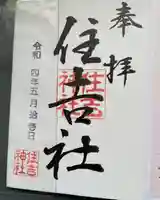 奉拝
住吉社
住吉神社
令和四年五月拾壱日
住吉神社